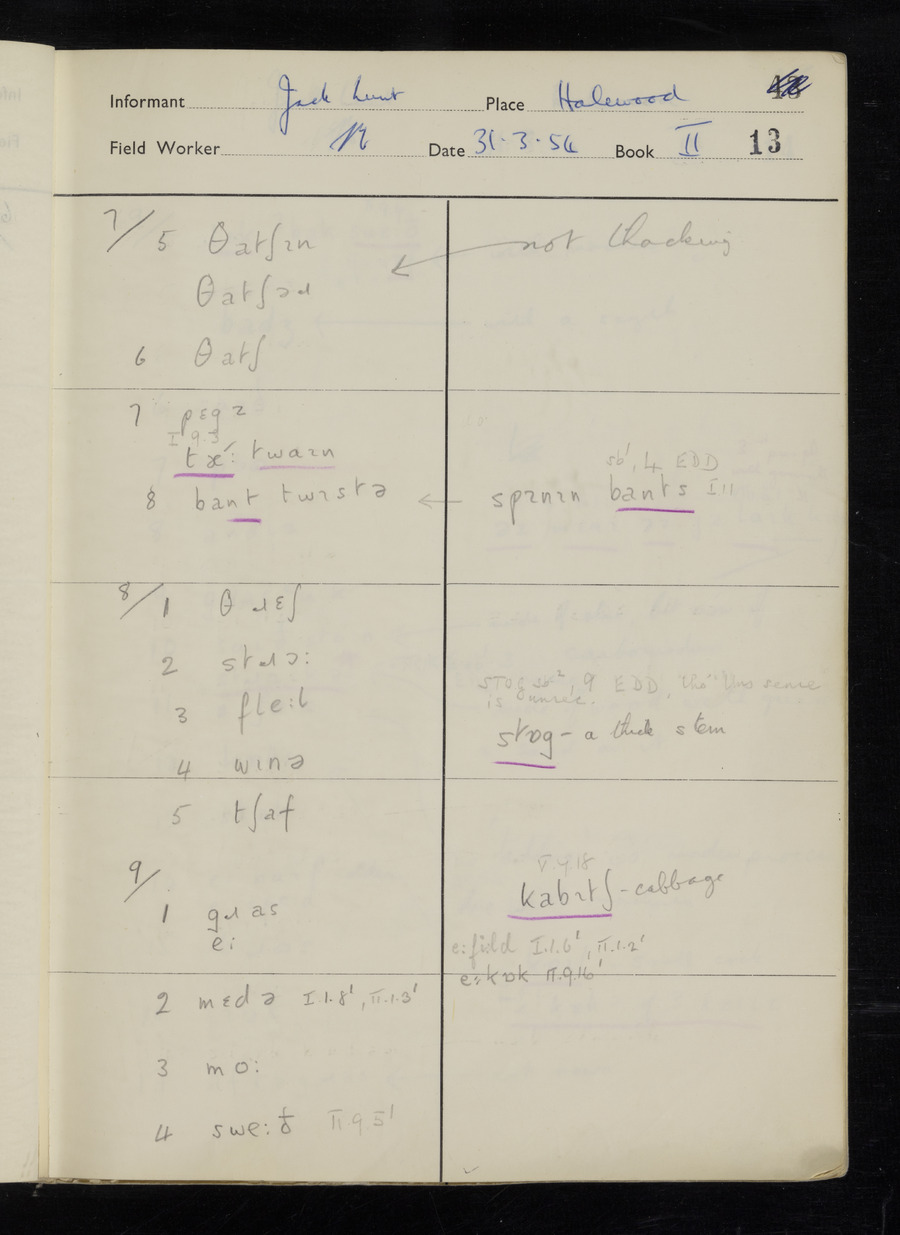 Informant Jack Lunt Place Halewood
Field Worker Date 31·3·54 Book II 13
7/ 5 θatʃɪn not thacking
θatʃəɹ
6 θatʃ
7 pɛgz
I 9.3
tæ: twaɪn
sb¹, 4 EDD
8 bant twɪstə spɪnɪn bants I 11
8/ 1 θɹɛʃ
2 stɹɔ:
STOG sb², 9 EDD, tho' this sense
is unrec.
3 fle:l
stɒg - a thick stem
4 wɪnə
5 tʃaf
9/
V.7.18
kabɪtʃ - cabbage
1 gɹas
e: e:fiːld I.1.6', II.1.2'
e:kɒk II.9.16'
2 mɛdə I.1.8', II.1.3'
3 mo:
4 swe:ð II.9.5'